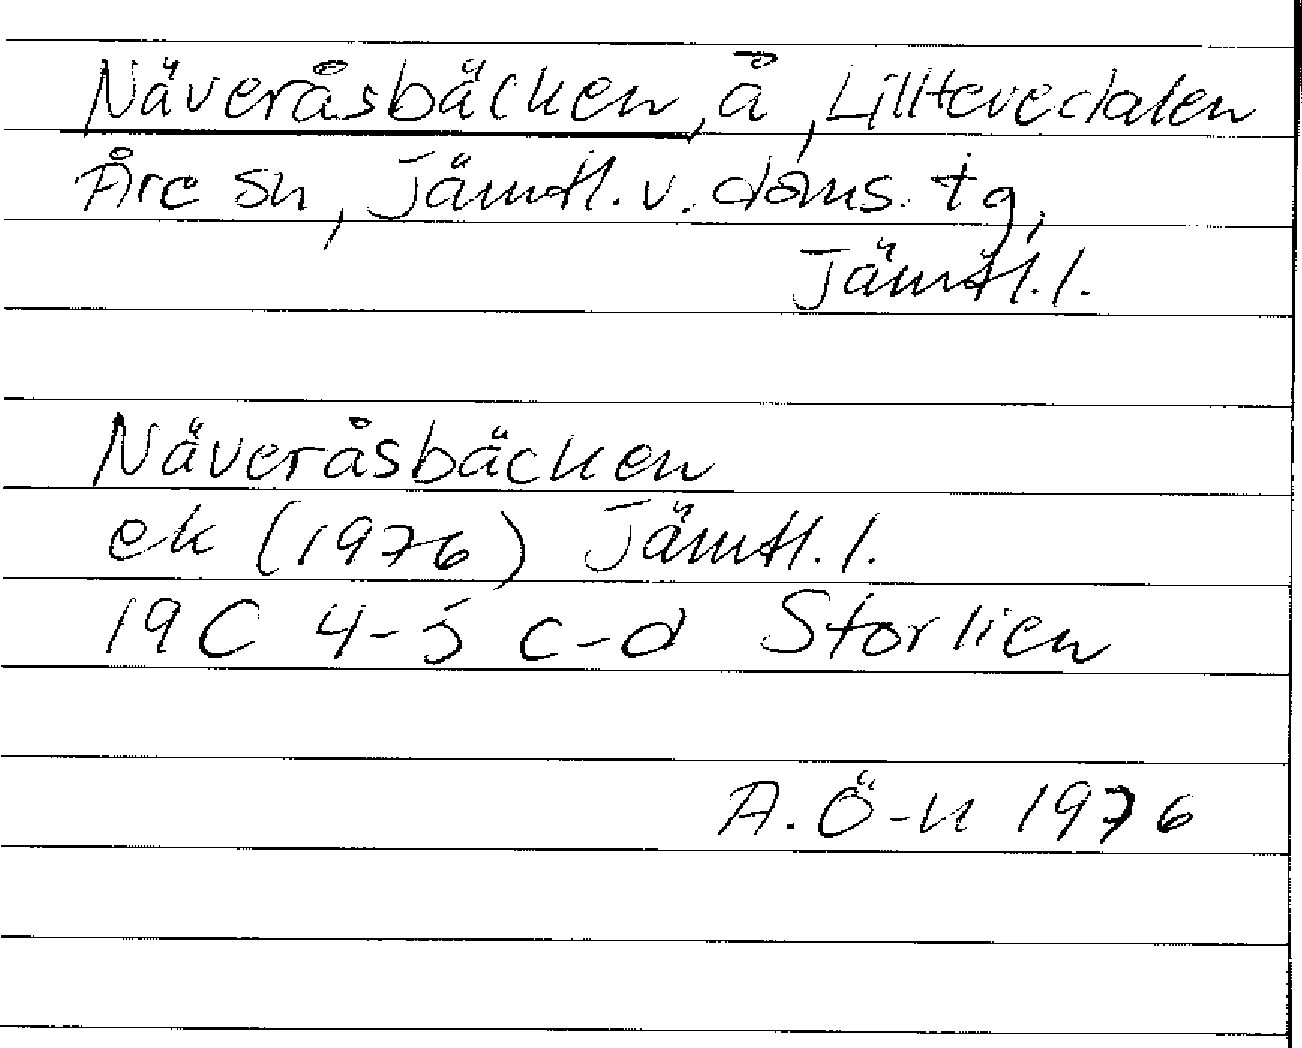 Näveråsbäcken, å, Lilltevedalen
Åre sn, Jämtl. v. doms. tg,
Jämtl. l.
Näveråsbäcken
ek (1976) Jämtl. l.
19C 4-5 c-d Storlien
A. Ö-n 1976